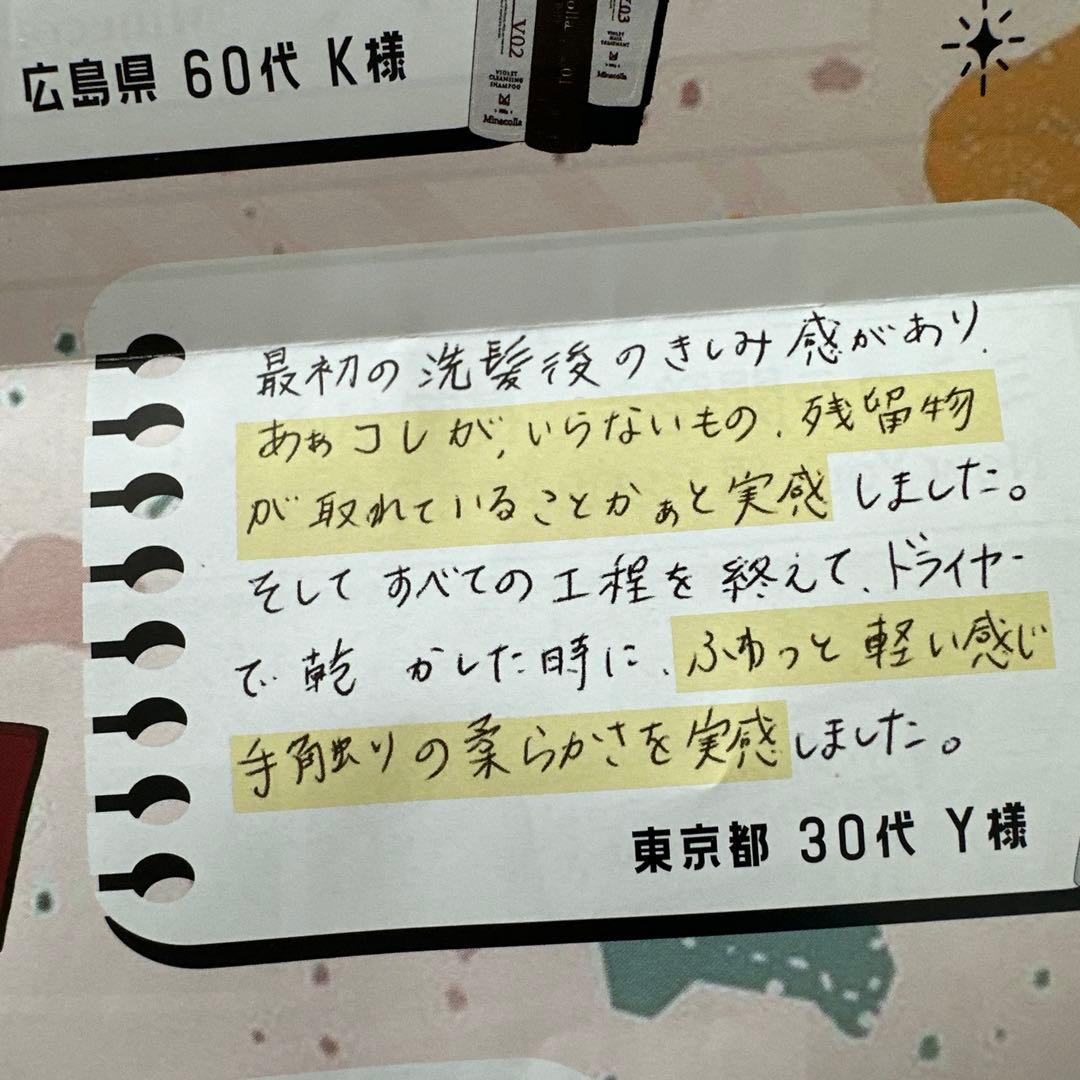 広島県 60代 K様
V02
VIOLET
CLEANSING
SHAMPOO
Minecolla
V03
Minecolla
最初の洗髪後のきしみ感があり、
あぁコレが、いらないもの、残留物
が取れていることかぁと実感しました。
そしてすべての工程を終えて、ドライヤー
で乾かした時に、ふわっと軽い感じ
手触りの柔らかさを実感しました。
東京都 30代 Y様